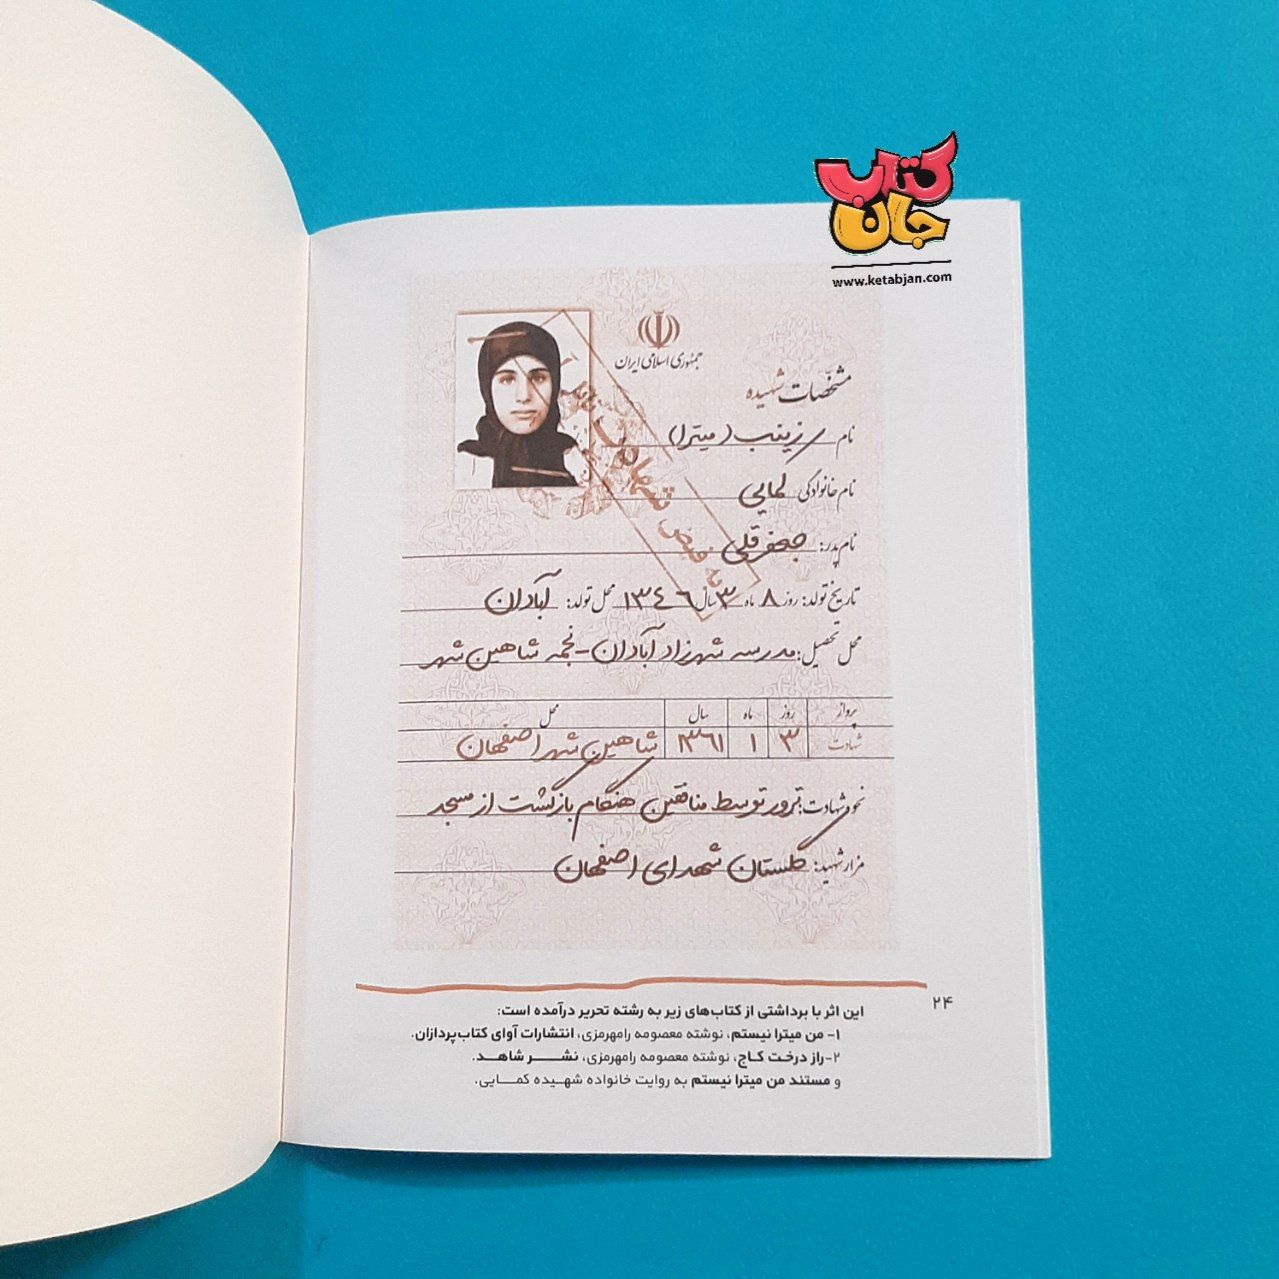 کتاب
جان
www.ketabjan.com
جمهوری اسلامی ایران
مشخصات شهیده
نام زینب (میترا)
نام خانوادگی کمایی
نام پدر: جعفرقلی
تاریخ تولد: روز ۸ ماه ۳ سال ۱۳٤٦ محل تولد: آبادان
محل تحصیل: مدرسه شهرزاد آبادان - نجمه شاهین شهر
پرواز روز ماه سال محل
شهادت ۳ ۱ ۱۳۶۱ شاهین شهر اصفهان
نحوه شهادت: ترور توسط منافقین هنگام بازگشت از مسجد
مزار شهید: گلستان شهدای اصفهان
به فیض شهادت نائل
۲۴
این اثر با برداشتی از کتاب‌های زیر به رشته تحریر درآمده است:
۱- من میترا نیستم، نوشته معصومه رامهرمزی، انتشارات آوای کتاب‌پردازان.
۲-راز درخت کاج، نوشته معصومه رامهرمزی، نشر شاهد.
و مستند من میترا نیستم به روایت خانواده شهیده کمایی.